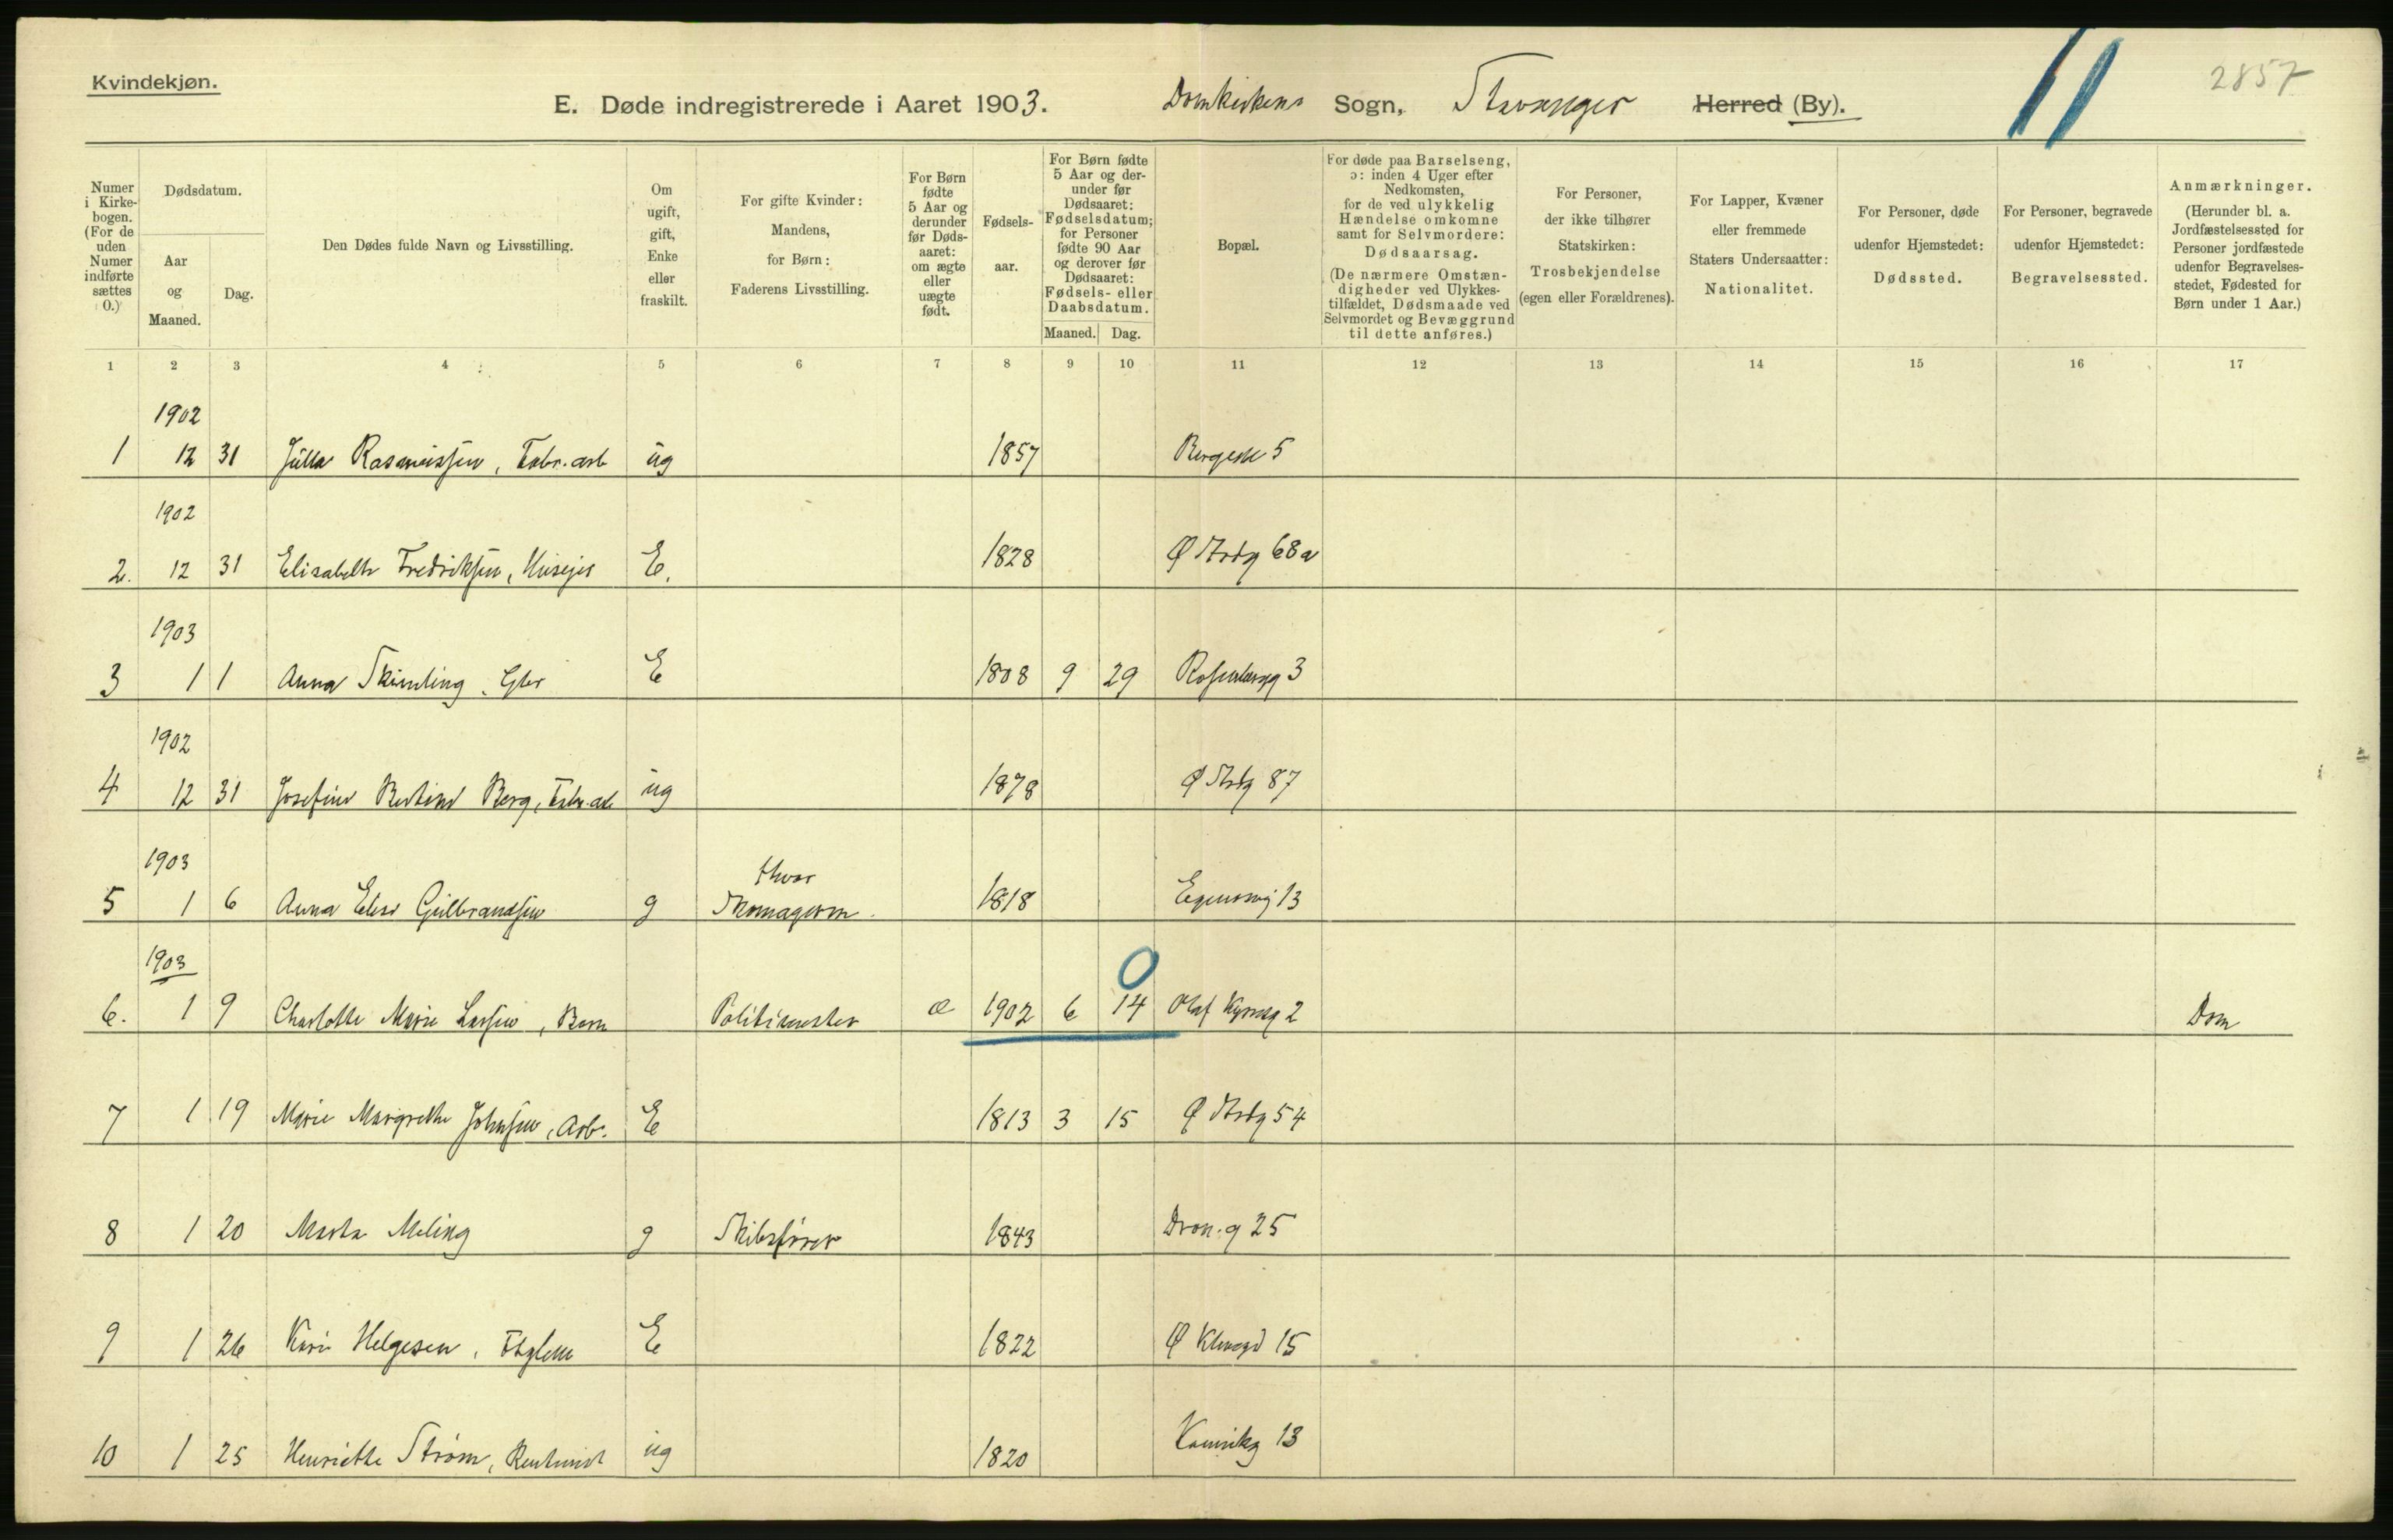 Kvindekjøn.
E. Døde indregistrerede i Aaret 1903. Domkirkens Sogn, Stavanger Herred (By).
11
2857
Numer i Kirkebogen. (For de uden Numer indførte sættes 0.)
Dødsdatum.
Aar og Maaned.
Dag.
Den Dødes fulde Navn og Livsstilling.
Om ugift, gift, Enke eller fraskilt.
For gifte Kvinder: Mandens, for Børn: Faderens Livsstilling.
For Børn fødte 5 Aar og derunder før Dødsaaret: om ægte eller uægte født.
Fødselsaar.
For Børn fødte 5 Aar og derunder før Dødsaaret: Fødselsdatum; for Personer fødte 90 Aar og derover før Dødsaaret: Fødsels- eller Daabsdatum.
Maaned. Dag.
Bopæl.
For døde paa Barselseng, ɔ: inden 4 Uger efter Nedkomsten, for de ved ulykkelig Hændelse omkomne samt for Selvmordere: Dødsaarsag. (De nærmere Omstændigheder ved Ulykkestilfældet, Dødsmaade ved Selvmordet og Bevæggrund til dette anføres.)
For Personer, der ikke tilhører Statskirken: Trosbekjendelse (egen eller Forældrenes).
For Lapper, Kvæner eller fremmede Staters Undersaatter: Nationalitet.
For Personer, døde udenfor Hjemstedet: Dødssted.
For Personer, begravede udenfor Hjemstedet: Begravelsessted.
Anmærkninger. (Herunder bl. a. Jordfæstelsessted for Personer jordfæstede udenfor Begravelsesstedet, Fødested for Børn under 1 Aar.)
1 2 3 4 5 6 7 8 9 10 11 12 13 14 15 16 17
1902
1 12 31 Julla Rasmussen, Fabr. arb ug 1857 Bergeste 5
1902
2. 12 31 Elisabeth Fredriksen, Husejer E. 1828 Ø Strdg 68a
1903
3 1 1 Anna Skimling, E 1808 9 29 3
1902
4 12 31 Josefine Bertine Berg, Fabr. arb ug 1878 Ø Strdg 87
1903
5 1 6 Anna Elise Gulbrandsen g Skomagerm. 1818 13
1903
6. 1 9 Charlotte Marie Larsen, Barn Politimester æ 1902 6 14 Olaf Kyrresg 2 Dom
0
7 1 19 Marie Margrethe Johnsen, Arb. E 1813 3 15 Ø Strdg 54
8 1 20 Marta Meling g Skibsfører 1843 Dron. g 25
9 1 26 Kari Helgesen, Ftglem E 1822 Ø Klevegd 15
10 1 25 Henriette Strøm, Rentenist ug 1820 Kannikg 13